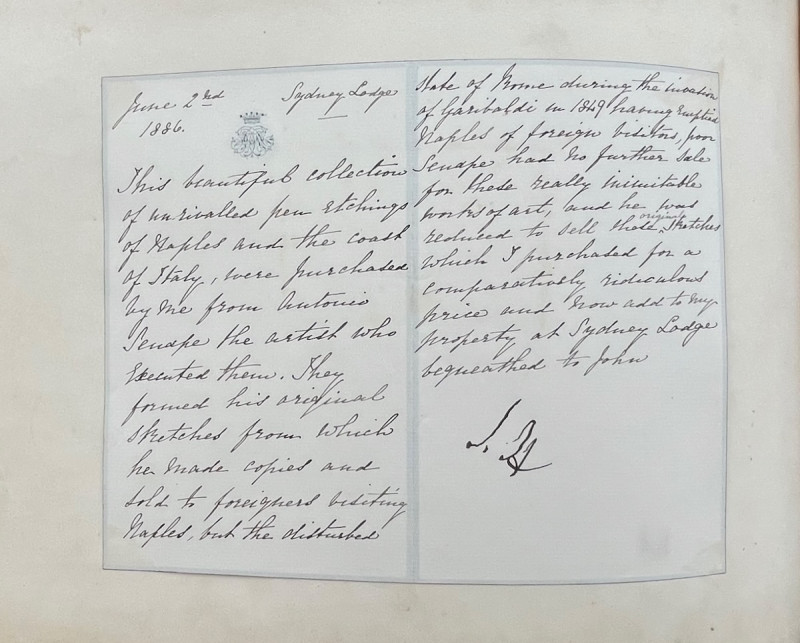 June 2nd Sydney Lodge
1886.
This beautiful collection
of unrivalled pen etchings
of Naples and the coast
of Italy, were purchased
by me from Antonio
Senape the artist who
executed them. They
formed his original
sketches from which
he made copies and
sold to foreigners visiting
Naples, but the disturbed
state of Rome during the invasion
of Garibaldi in 1849 having emptied
Naples of foreign visitors, poor
Senape had no further sale
for these really inimitable
works of art, and he was
reduced to sell these original sketches
which I purchased for a
comparatively ridiculous
price and now add to my
property at Sydney Lodge
bequeathed to John